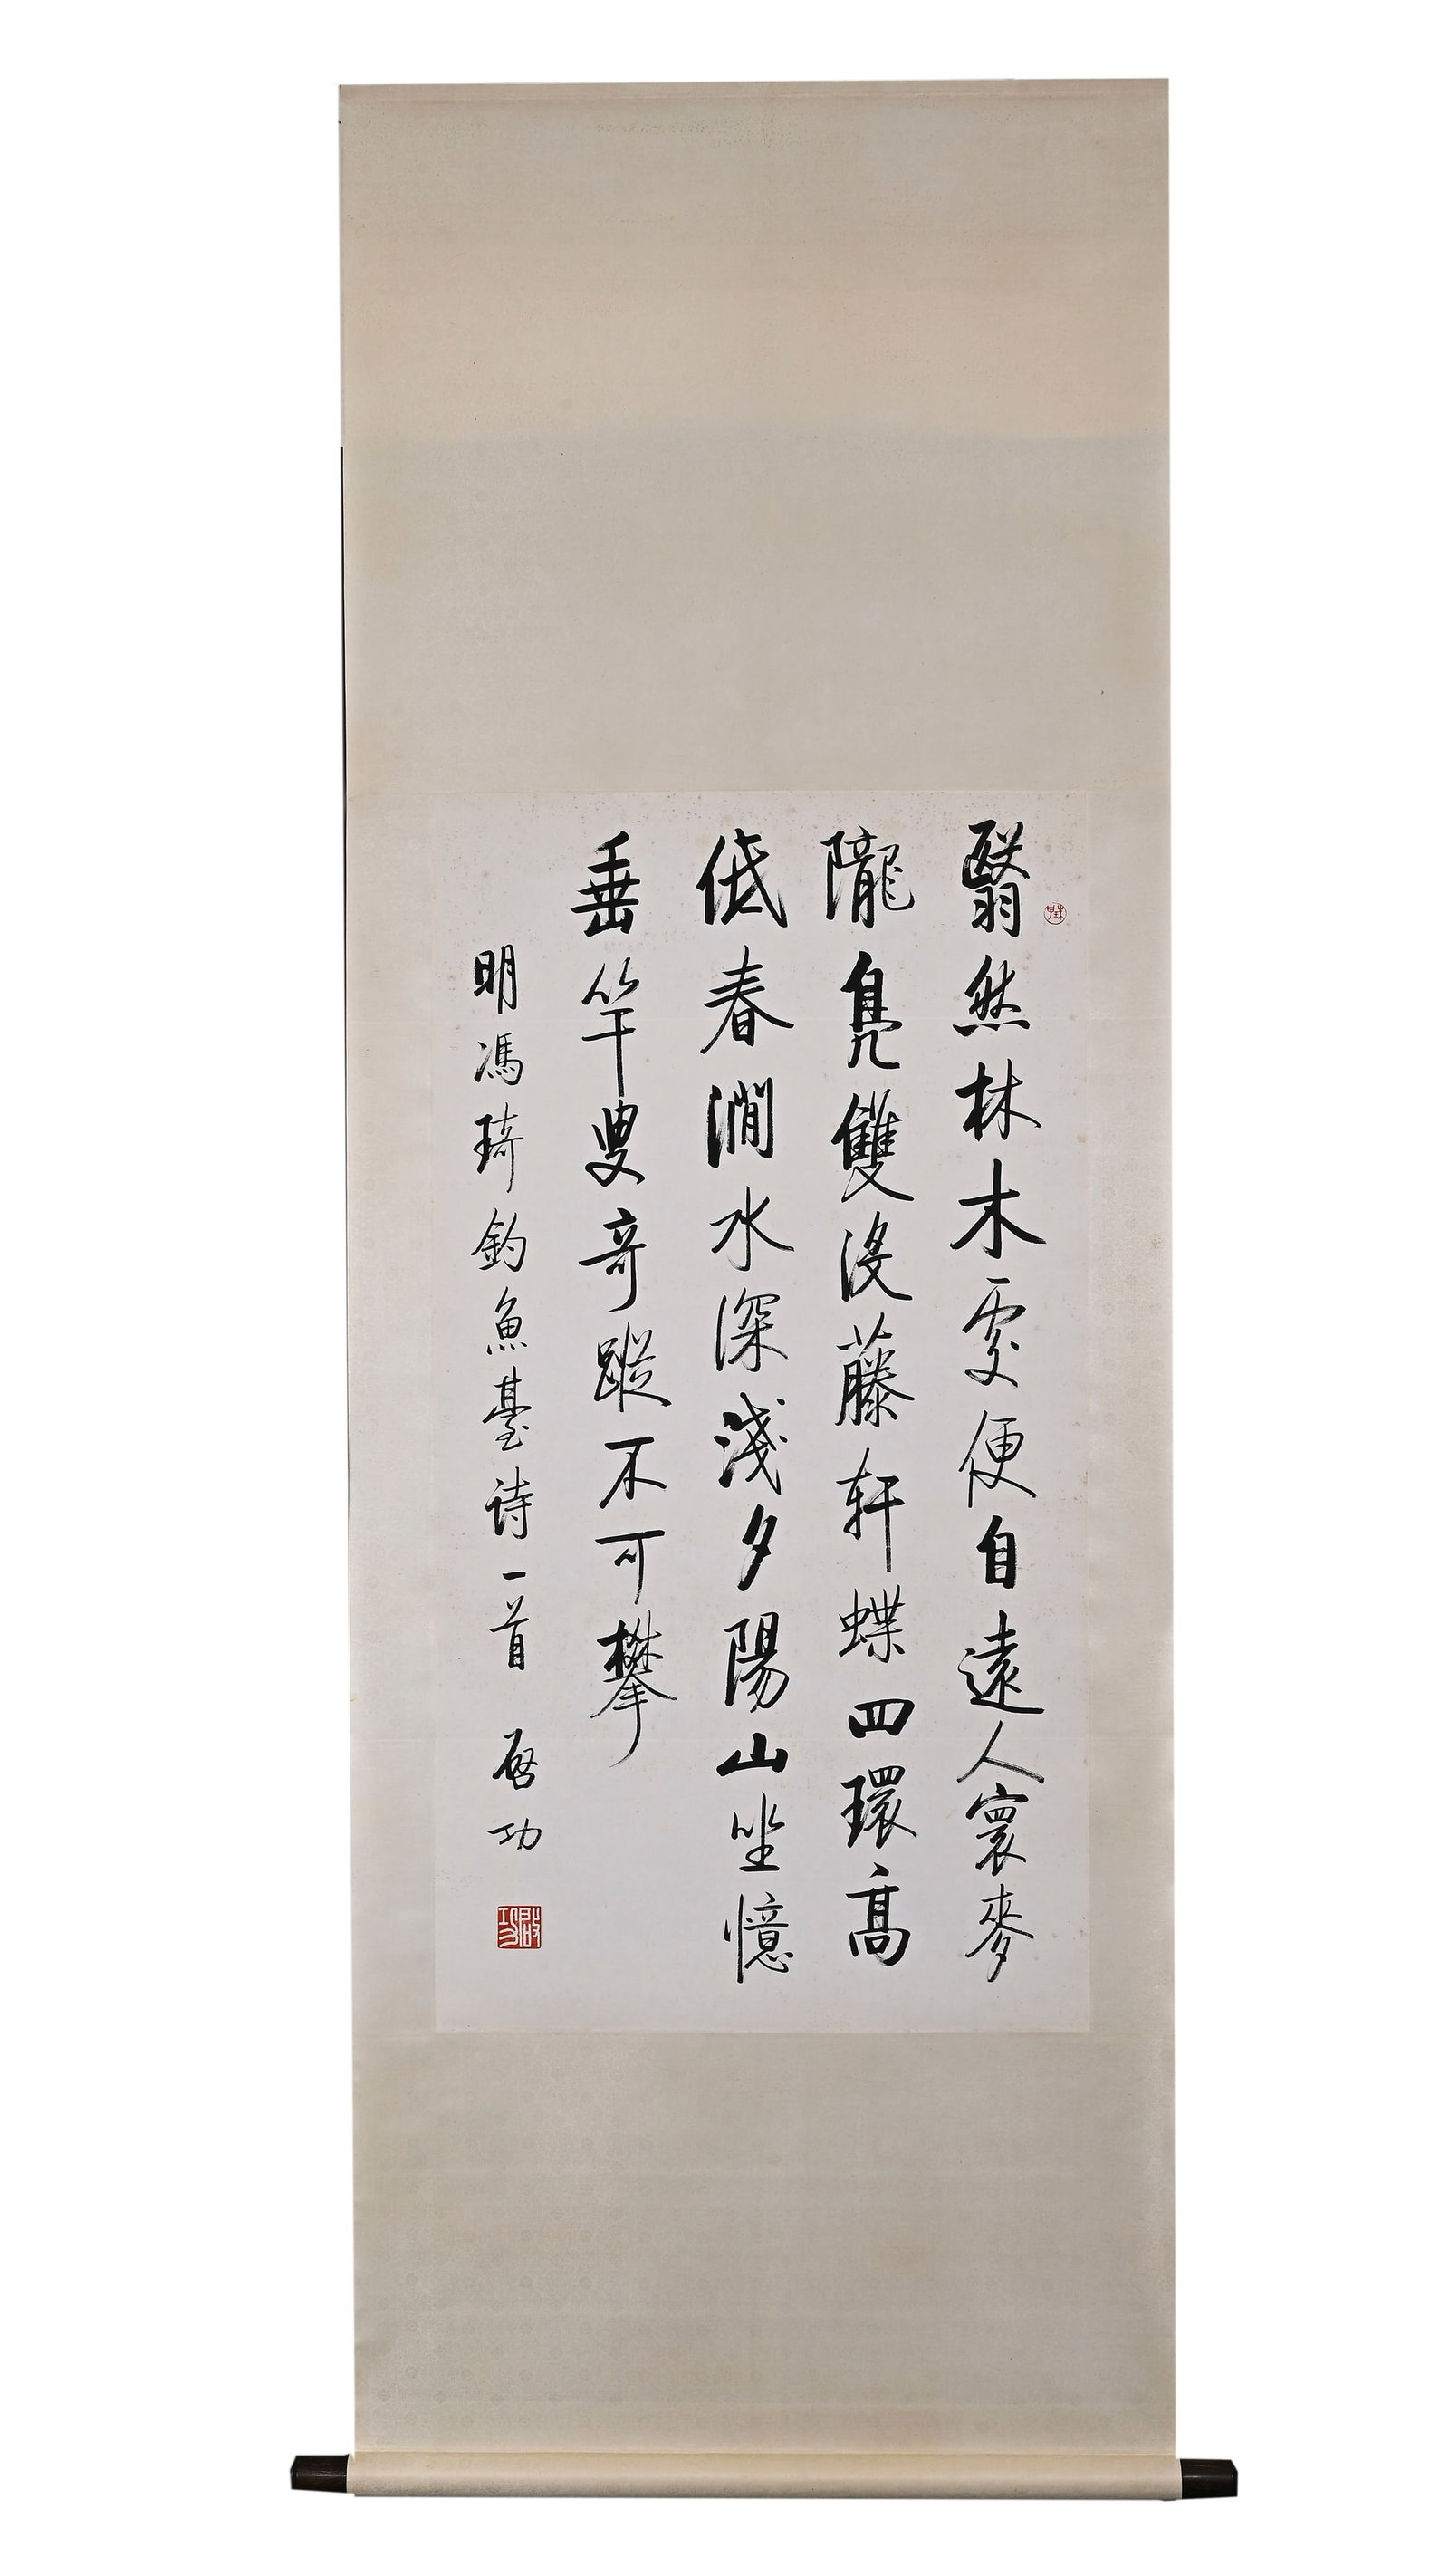 翳然林木處便自遠人寰麥
隴鳧雙沒藤軒蝶四環高
低春澗水深淺夕陽山坐憶
垂竿叟奇蹤不可攀
明馮琦釣魚臺诗一首 啓功
啟功